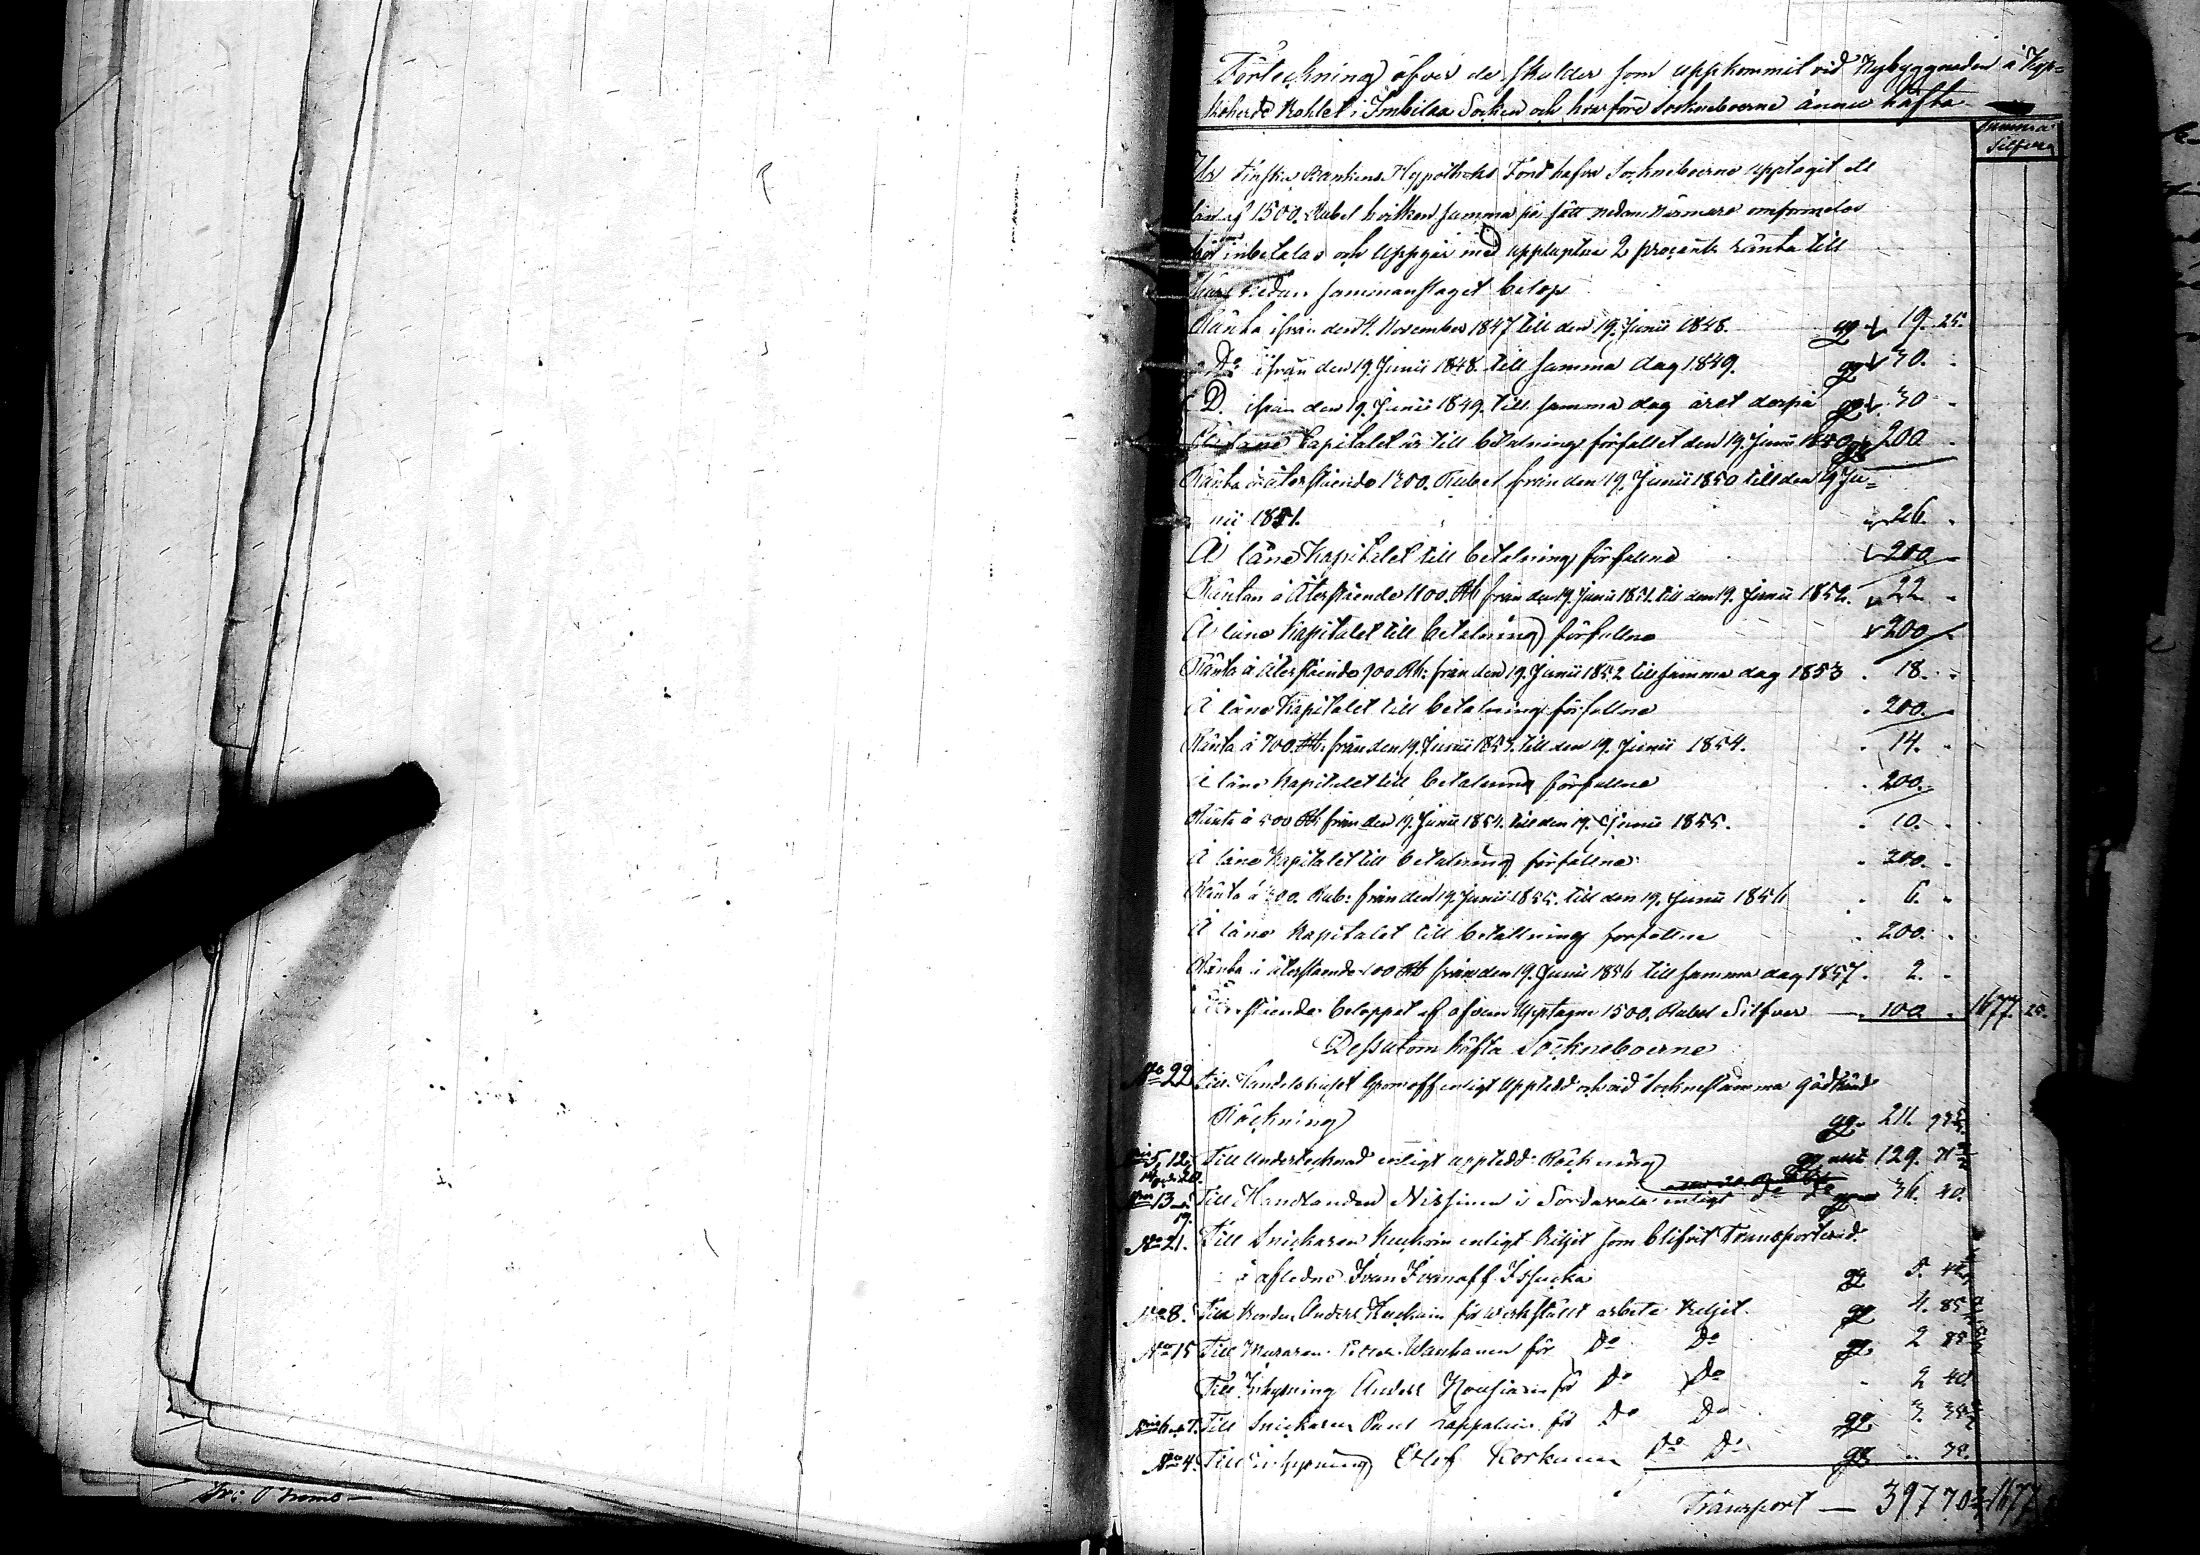 Förteckning öfver de skulder som uppkommit vid Nybyggnaden å Kyr=
koherde Bohlet i Imbilax Socken och hvarföre Sockneboerne ännu häfta
Summa
Silfver
Ur Finska Bankens Hypotheks Fond hafva Sockneboerne upptagit ett
lån af 1500. Rubel hvilken summa på sätt nedan närmare omförmeles
bör inbetalas och uppgår med upplupne 2 procents ränta till
nedan sammanslaget belop
Ränta ifrån den 4. November 1847 till den 19. Junii 1848. 19. 25.
Do ifrån den 19. Junii 1848. till samma dag 1849. 30.
D. ifrån den 19. Junii 1849. till samma dag året derpå 30
låne Capitalet är till betalning förfallet den 19. Junii 1850 200
Ränta å återstående 1300. Rubel från den 19. Junii 1850 till den 19 Ju=
nii 1851. 26.
Å låne Kapitalet till betalning förfallne 200
Räntan å återstående 1100. Rb från den 19. Junii 1851. till den 19. Junii 1852. 22
Å låne Kapitalet till betalning förfallne 200
Ränta å återstående 900 Rb. från den 19. Junii 1852 till samma dag 1853 18.
Å låne Kapitalet till betalning förfallne 200.
Ränta å 700. Rb. från den 19. Junii 1853. till den 19. Junii 1854. 14.
Å låne Kapitalet till betalning förfallne 200.
Ränta å 500 Rb från den 19. Junii 1854. till den 19. Junii 1855. 10.
Å låne Kapitalet till betalning förfallne 200.
Ränta å 300. Rub: från den 19. Junii 1855. till den 19. Junii 1856 6.
Å låne Kapitalet till betallning förfallne 200.
Ränta å återstående 100 Rb från den 19. Junii 1856 till samma dag 1857. 2.
Återstående beloppet af ofvan upptagne 1500. Rubel Silfver — 100 1677. 25.
Dessutom häfta Sockneboerne
No 22 till Handelshuset Gromoff enligt uppledd och vid Socknestämma godkänd
Räckning 211.
5, 12, till undertecknad enligt uppledd Räckning 129.
No 13 19. Till Handlanden Nissinen i Sordavala enligt do do 36. 40.
No 21. Till Snickaren Kuckoin enligt Riljet som blifvit transporterad
å afledne Ivan Ivanoff
No 8. Till bonden Anders för verkställt arbete 4. 85
No 15 Till Muraren Petter för Do Do 2 85
Till Inhysning Anders för Do Do 2 40
Till Snickaren Paul för Do Do 3.
No 4. Till inhysning Olof Korkunen Do Do
Transport — 397 70 1677